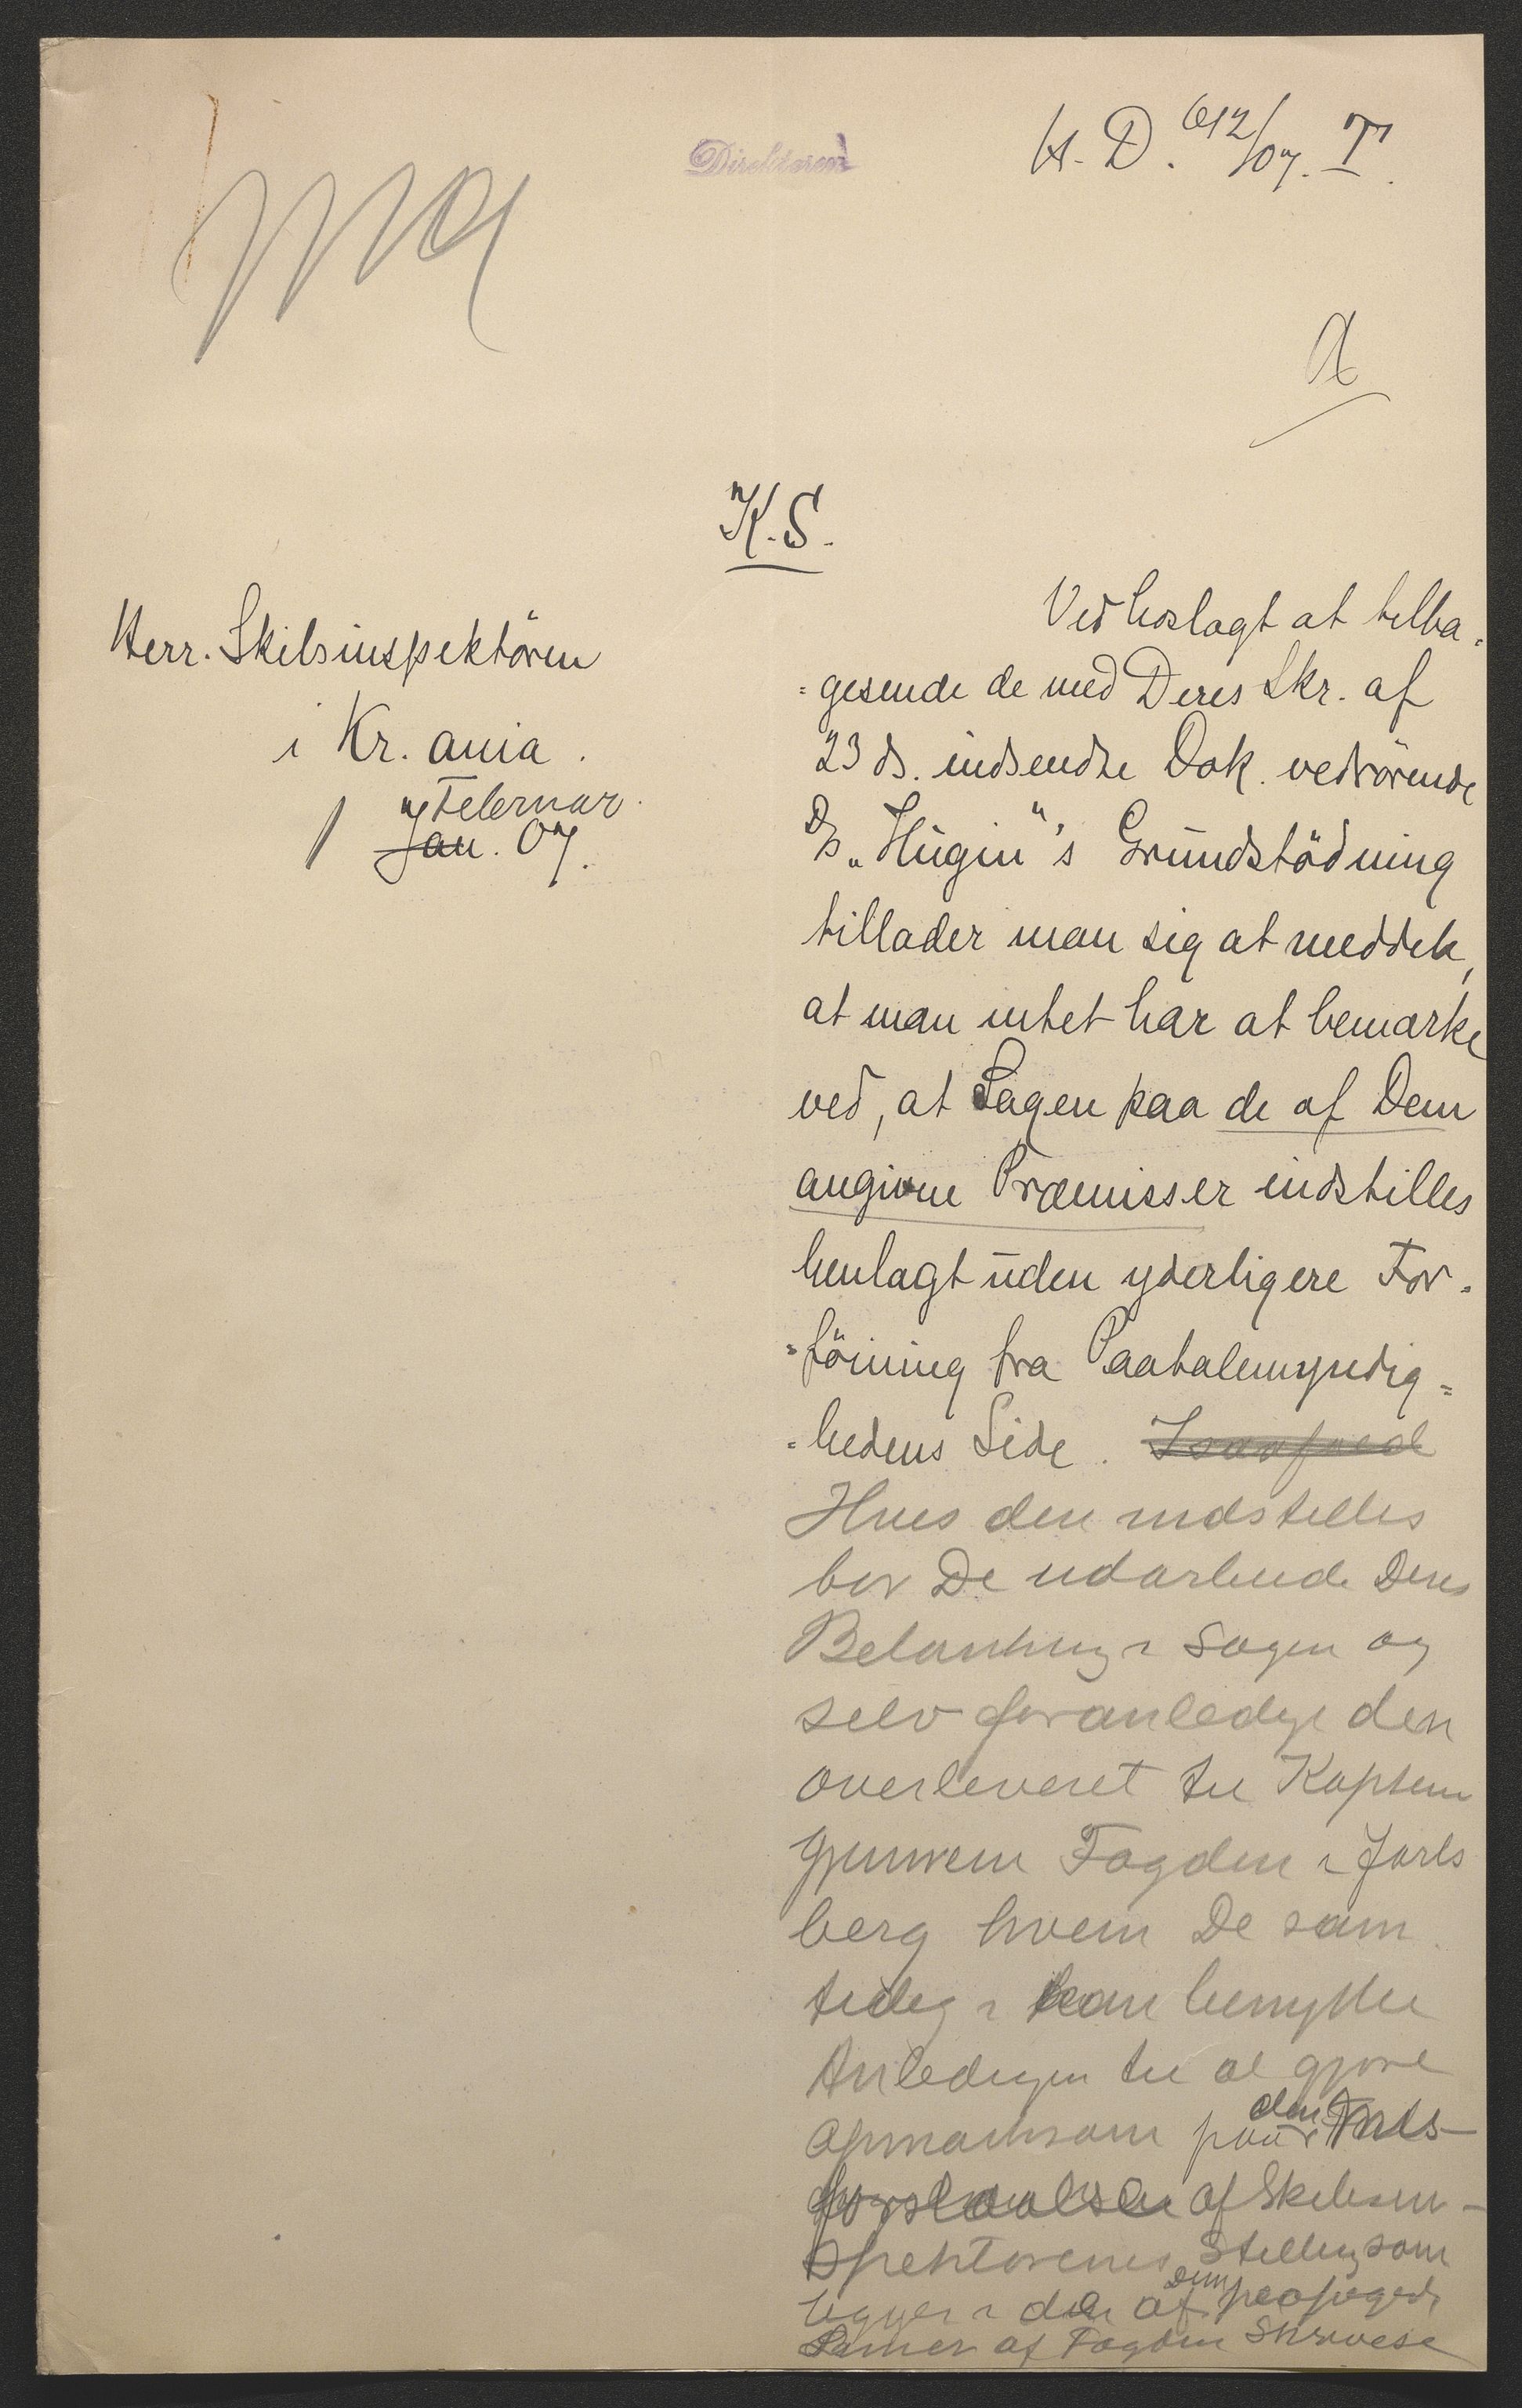 Direktøren
H. D. 612/07. T.
K. S.
Herr. Skibsinspektören
i Kr. ania.
7 Februar.
Jan. 07.
Ved hoslagt at tilba-
=gesende de med Deres Skr. af
23 ds. indsendte Dok. vedrörende
D/s „Hugin"'s Grundstödning
tillader man sig at meddele,
at man intet har at bemærke
ved, at Sagen paa de af Dem
angivne Præmisser indstilles
henlagt uden yderligere For-
=föining fra Paatalemyndig=
=hedens Side.
Hvis den indstilles
bør De udarbeide Deres
Betænkning i Sagen og
selv foranledige den
overleveret til Kaptein
gjennem Fogden i Jarls
berg hvem De sam
tidig kan benytte
Anledngen til at gjøre
opmærksom paa den Mis-
forstaaelse af Skibsin-
spektorenes Stilling som
ligger i den af Dem paapegede
af Fogdens Skrivelse